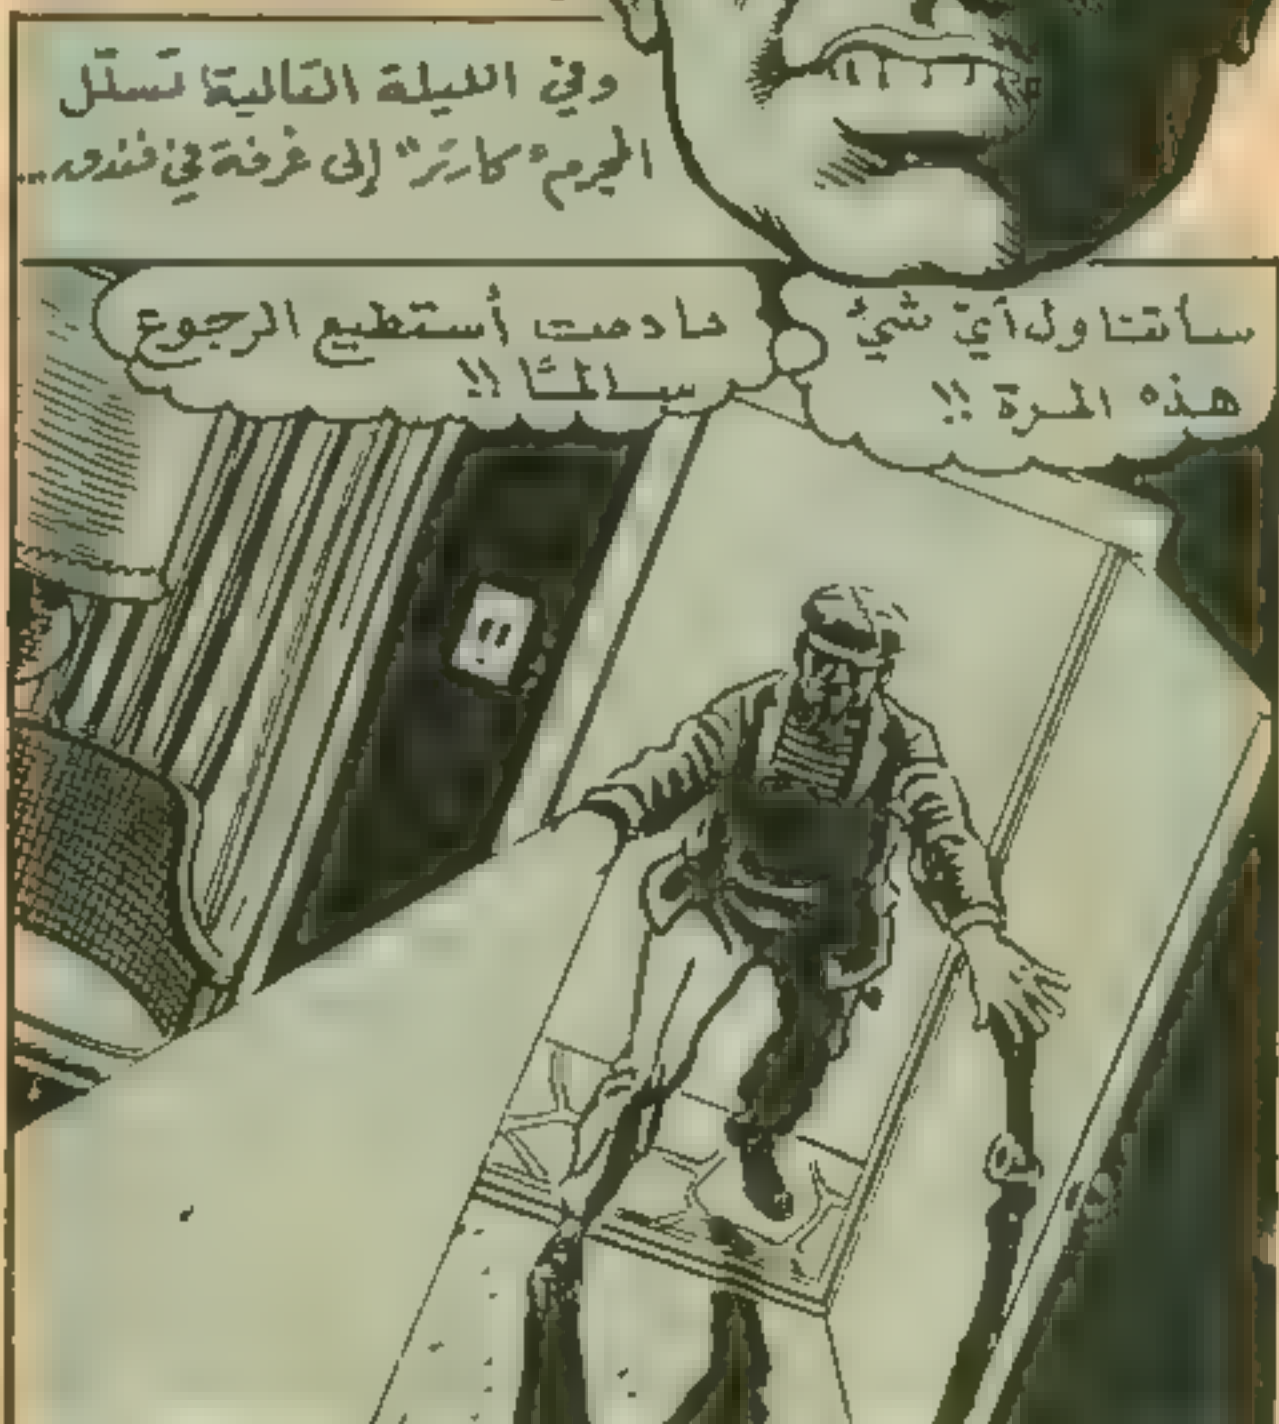 وفي الليلة التالية تسلل
المجرم "كارتر" إلى غرفة في فندق...
سأتناول أيّ شيءٍ
هذه المرة !!
مادمت أستطيع الرجوع
سالمًا !!